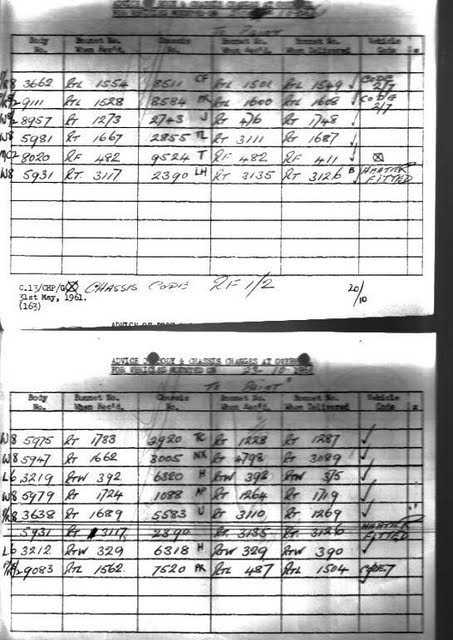 ADVICE OF BODY & CHASSIS CHANGES AT
FOR VEHICLES MOUNTED ON
"To Print"
Body No. Bonnet No. When Rec'd. Chassis No. Bonnet No. When Rec'd. Bonnet No. When Delivered Vehicle Code
3662 RTL 1554 8511 CF RTL 1501 RTL 1549 ✓ CODE 2/7
9111 RTL 1528 8584 PR RTL 1600 RTL 1608 ✓ CODE 2/7
W8 8957 RT 1273 2743 J RT 476 RT 1748 ✓
W8 5981 RT 1667 2855 TL RT 3111 RT 1687 ✓
8020 RF 482 9524 T RF 482 RF 411 ✓ ☒
W8 5931 RT 3117 2390 LH RT 3135 RT 3126 B HEATER FITTED
C.13/CHP/G ☒ CHASSIS CODE RF 1/2 20/10
31st May, 1961.
(163)
ADVICE OF BODY & CHASSIS CHANGES AT
FOR VEHICLES MOUNTED ON 23-10-
"To Print"
Body No. Bonnet No. When Rec'd. Chassis No. Bonnet No. When Rec'd. Bonnet No. When Delivered Vehicle Code
W8 5975 RT 1783 2920 TC RT 1228 RT 1287 ✓
W8 5947 RT 1662 3005 NX RT 4798 RT 3089 ✓
L6 3219 RTW 392 6320 H RTW 392 RTW 375 ✓
W8 5979 RT 1724 1088 AP RT 1264 RT 1719 ✓
3638 RT 1689 5583 U RT 3110 RT 1269 ✓
5931 RT 3117 2390 RT 3135 RT 3126 HEATER FITTED
L6 3212 RTW 329 6318 H RTW 329 RTW 390 ✓
9083 RTL 1562 7520 PR RTL 487 RTL 1504 CODE 7